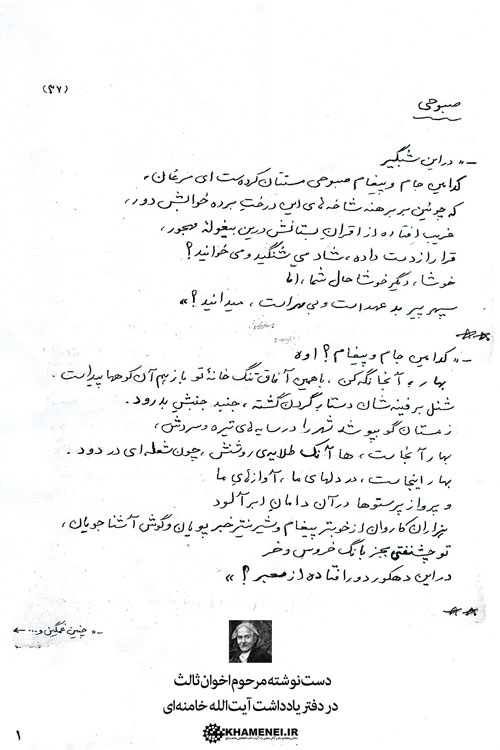 (۳۷)
صبوحی
ــ « در این شبگیر
کدامین جام و پیغام صبوحی مستتان کرده‌ست ای مرغان،
که چونین بر برهنه شاخه‌های این درختِ برده خوابش دور،
غریب افتاده از اقران بستانش درین بیغولهٔ مهجور،
قرار از دست داده، شاد می‌شنگید و می‌خوانید؟
خوشا، دیگر خوشا حال شما، اما
سپهر پیر بد عهد است و بی‌مهر است، میدانید؟ »
ــ « کدامین جام و پیغام؟ اوه
بهار، به آنجا نگه کن، با همین آفاق تنگ خانهٔ تو باز هم آن کوهها پیداست.
شنل برفینه‌شان دستار گردن گشته، جنبد جنبش بدرود.
زمستان گو بپوشد شهر را در سایه‌های تیره و سردش،
بهار آنجاست، ها آنک طلایه‌ی روشنش، چون شعله‌ای در دود.
بهار اینجاست، در دلهای ما، آوازهای ما
و پرواز پرستوها در آن دامان ابرآلود
هزاران کاروان از خوبتر پیغام و شیرین‌تر خبر پویان و گوش آشنا جویان،
تو چشنفتی بجز بانگ خروس و خر
در این دهکورِ دور افتاده از معبر؟ »
ــ « چنین غمگین و... ←
دست‌نوشته مرحوم اخوان ثالث
در دفتر یادداشت آیت‌الله خامنه‌ای
KHAMENEI.IR
۱